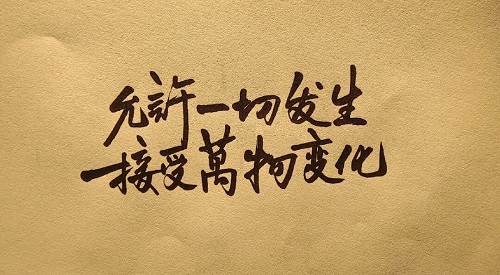 允許一切发生
接受萬物变化